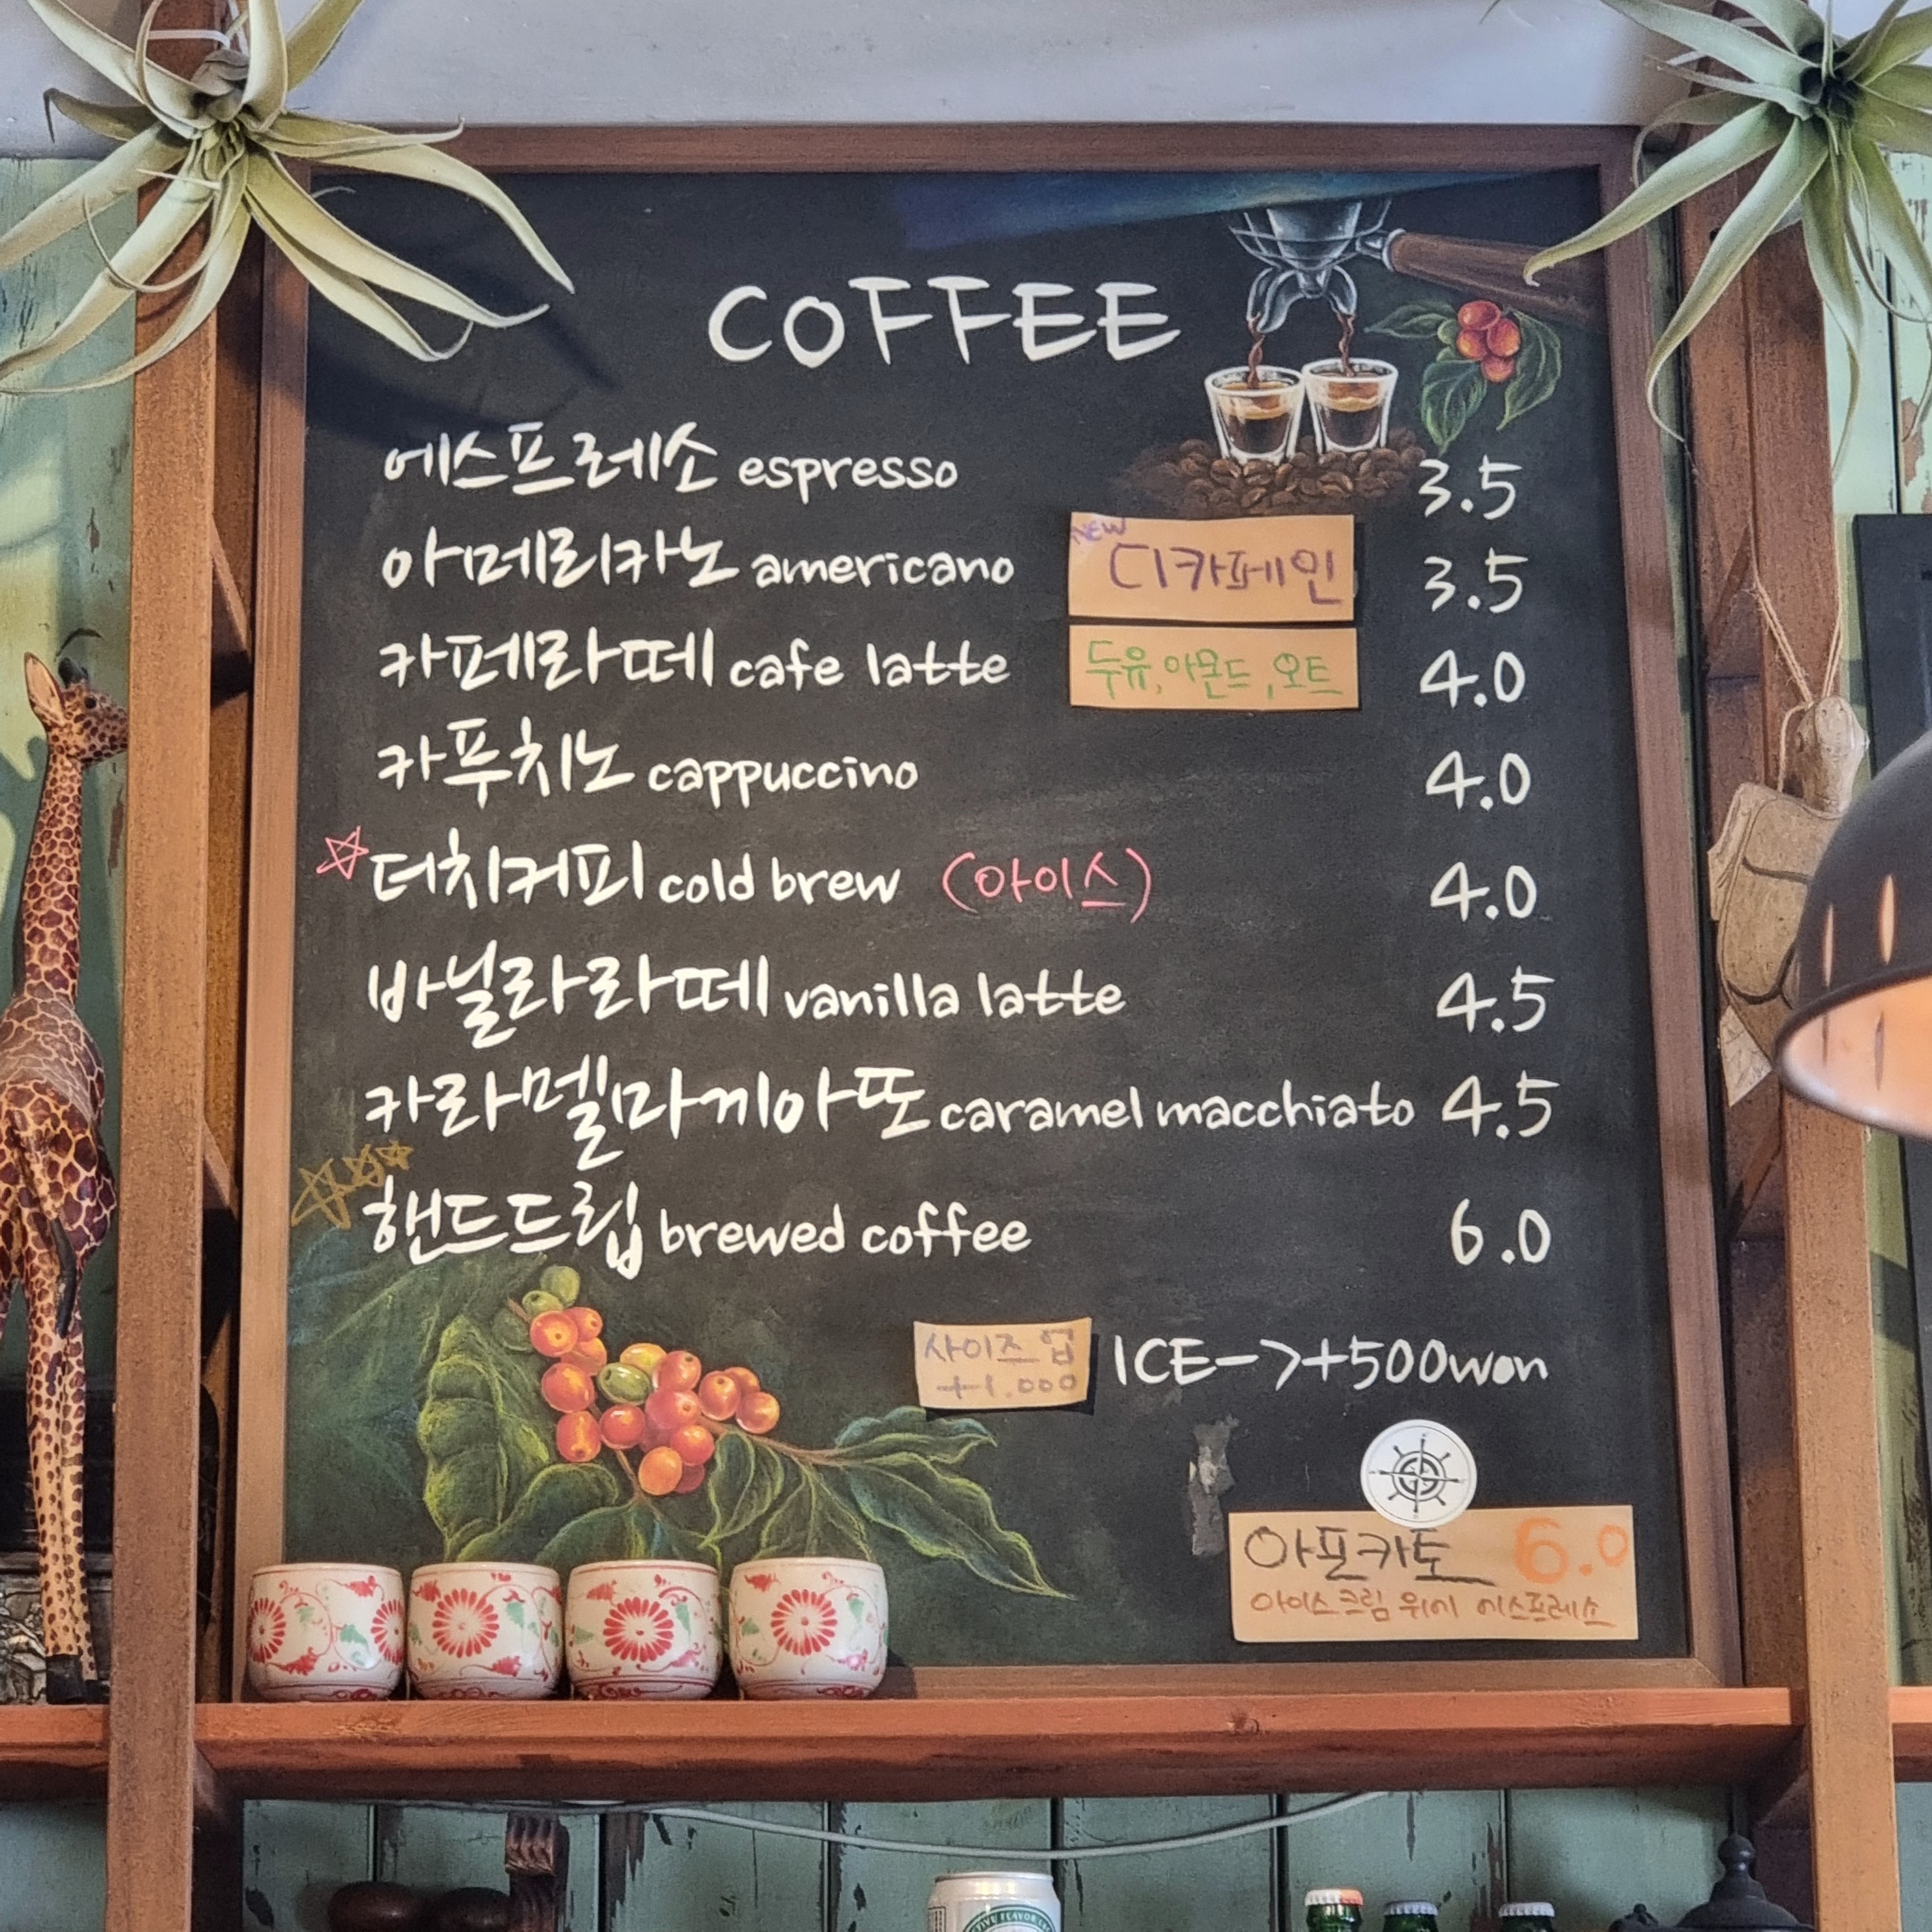 COFFEE
에스프레소 espresso 3.5
NEW
아메리카노 americano 디카페인 3.5
카페라떼 cafe latte 두유, 아몬드, 오트 4.0
카푸치노 cappuccino 4.0
더치커피 cold brew (아이스) 4.0
바닐라라떼 vanilla latte 4.5
카라멜마끼아또 caramel macchiato 4.5
핸드드립 brewed coffee 6.0
사이즈 업
+1.000
ICE->+500won
아포카토 6.0
아이스크림 위에 에스프레소